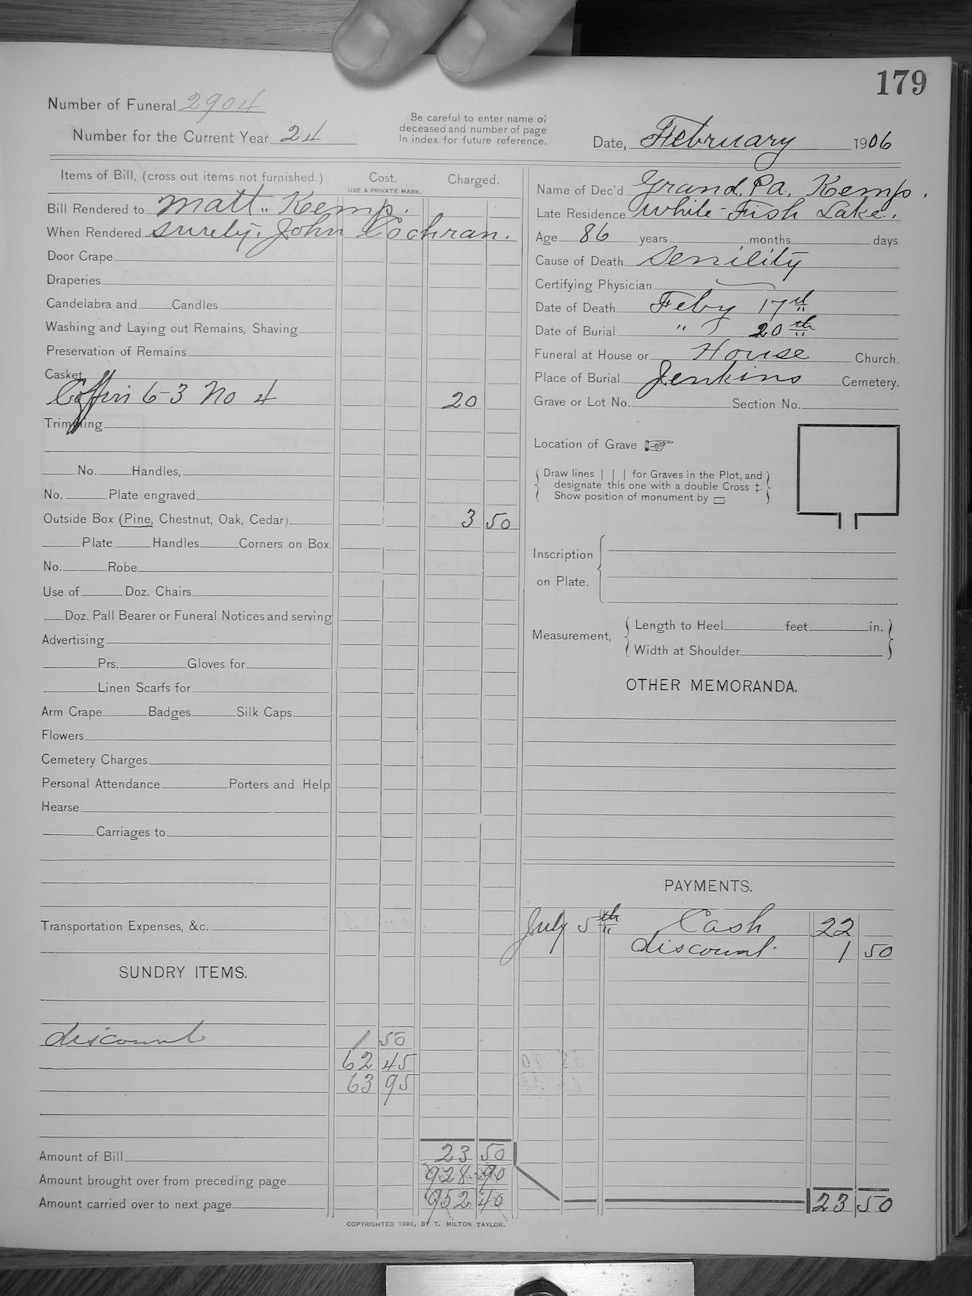 179
Number of Funeral 2904
Number for the Current Year 24
Be careful to enter name of
deceased and number of page
In index for future reference.
Date, February 1906
Items of Bill, (cross out items not furnished.) Cost. Charged.
USE A PRIVATE MARK.
Bill Rendered to Matt. Kemp.
When Rendered surety. John Cochran.
Door Crape
Draperies
Candelabra and Candles
Washing and Laying out Remains, Shaving
Preservation of Remains
Casket
Coffin 6-3 No 4 20
Trimming
No. Handles,
No. Plate engraved
Outside Box (Pine, Chestnut, Oak, Cedar) 3 50
Plate Handles Corners on Box.
No. Robe
Use of Doz. Chairs
Doz. Pall Bearer or Funeral Notices and serving
Advertising
Prs. Gloves for
Linen Scarfs for
Arm Crape Badges Silk Caps
Flowers
Cemetery Charges
Personal Attendance Porters and Help
Hearse
Carriages to
Transportation Expenses, &c.
SUNDRY ITEMS.
discount 1 50
62 45
63 95
Amount of Bill 23 50
Amount brought over from preceding page 928 90
Amount carried over to next page 952 40
COPYRIGHTED 1890, BY T. MILTON TAYLOR.
Name of Dec'd Grand. Pa. Kemp.
Late Residence White Fish Lake.
Age 86 years months days
Cause of Death Senility
Certifying Physician
Date of Death Feby 17th
Date of Burial " 20th
Funeral at House or House Church.
Place of Burial Jenkins Cemetery.
Grave or Lot No. Section No.
Location of Grave
Draw lines | | | for Graves in the Plot, and
designate this one with a double Cross ‡.
Show position of monument by
Inscription
on Plate.
Measurement, Length to Heel feet in.
Width at Shoulder
OTHER MEMORANDA.
PAYMENTS.
July 5th Cash 22
discount 1 50
23 50